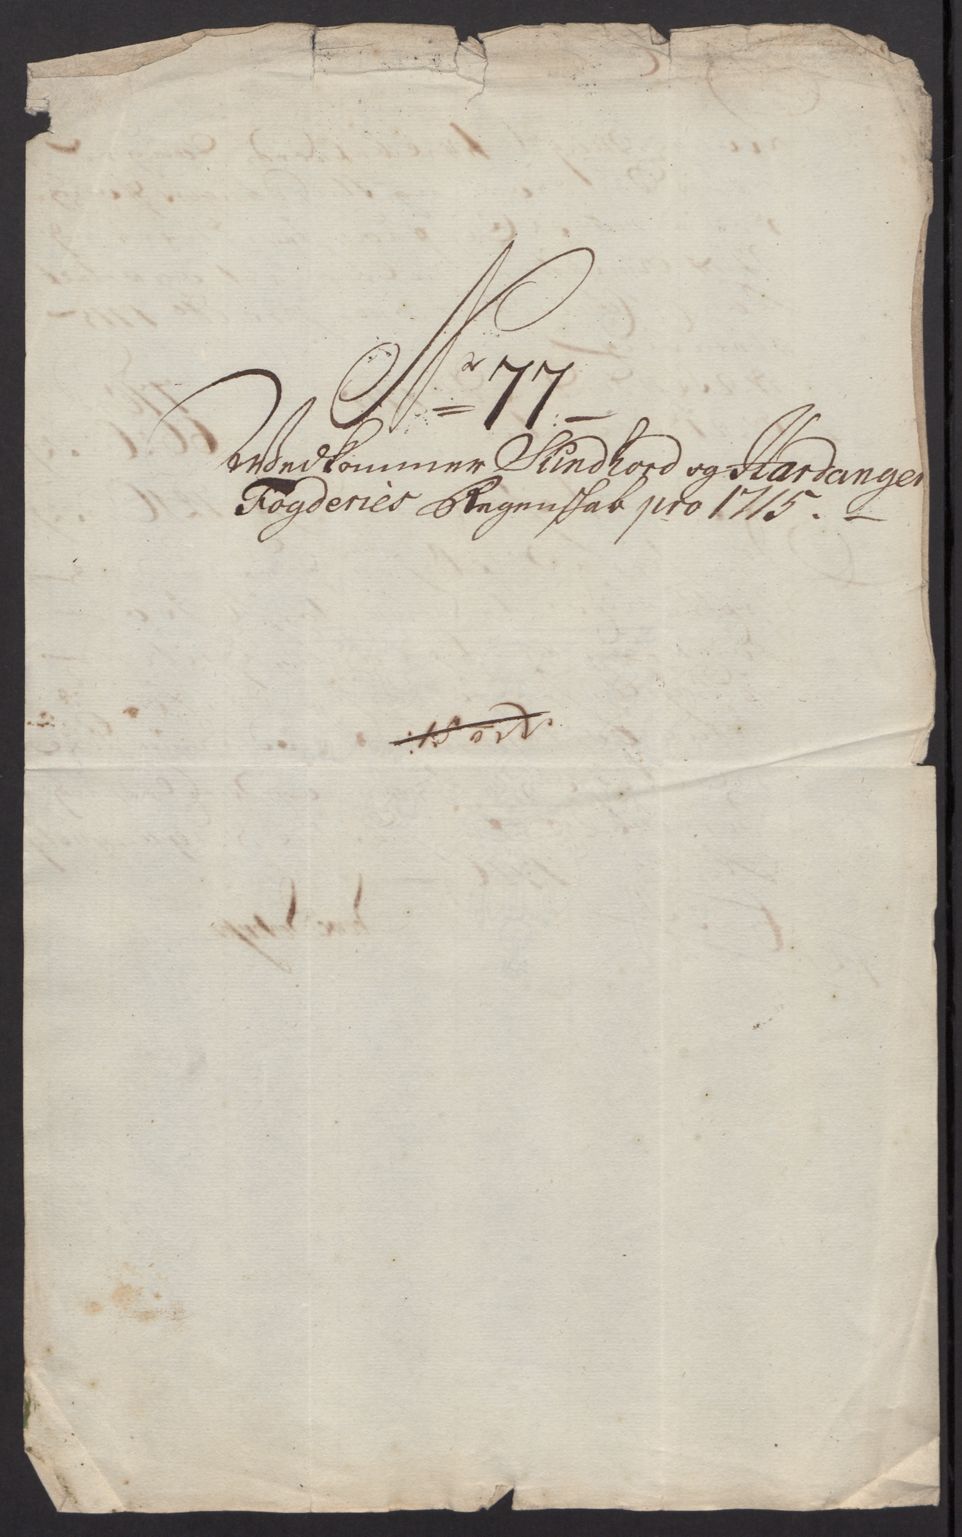 Nr 77
Wedkommer Sundhord og Hardanger
Fogderies Regenskab pro 1715.